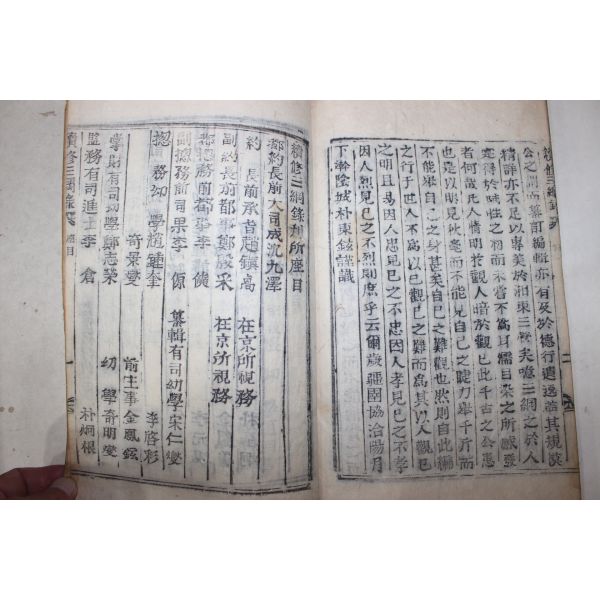 公之閒而纂訂編輯亦有及於德行遺逸諸其規模
精詳亦不足以專美於湘東三覺矣噫三綱之於人
寔得於純性之初而不啻不爲耳濡目染之所感發
者何哉凡人情明於觀人暗於觀己此千古之公患
也是以明見秋毫而不能見自己之睫力擧千斤而
不能擧自己之身甚矣自己之難觀也然則自此編
之行于世人不以觀己之難而爲其以人觀己
之明且易因人忠見己之不忠因人孝見己之不孝
因人烈見己之不烈則庶乎云爾歲疆圉協洽陽月
下澣陰城朴東鉉謹識
續修三綱錄
續修三綱錄刊所座目
都約長前大司成沈九澤
約長前承旨趙鎭高 在京所視務
副約長前都事鄭殷采 在京所視務
都摠務前都事李儀
副摠務前司果李傆 纂輯有司幼學宋仁燮
摠務幼學趙鍾奎 李啓杉
奇景燮 前主事金鳳鉉
掌財有司幼學鄭志榮 幼學奇明燮
監務有司進士李倉 朴炯根
續修三綱錄 座目 一